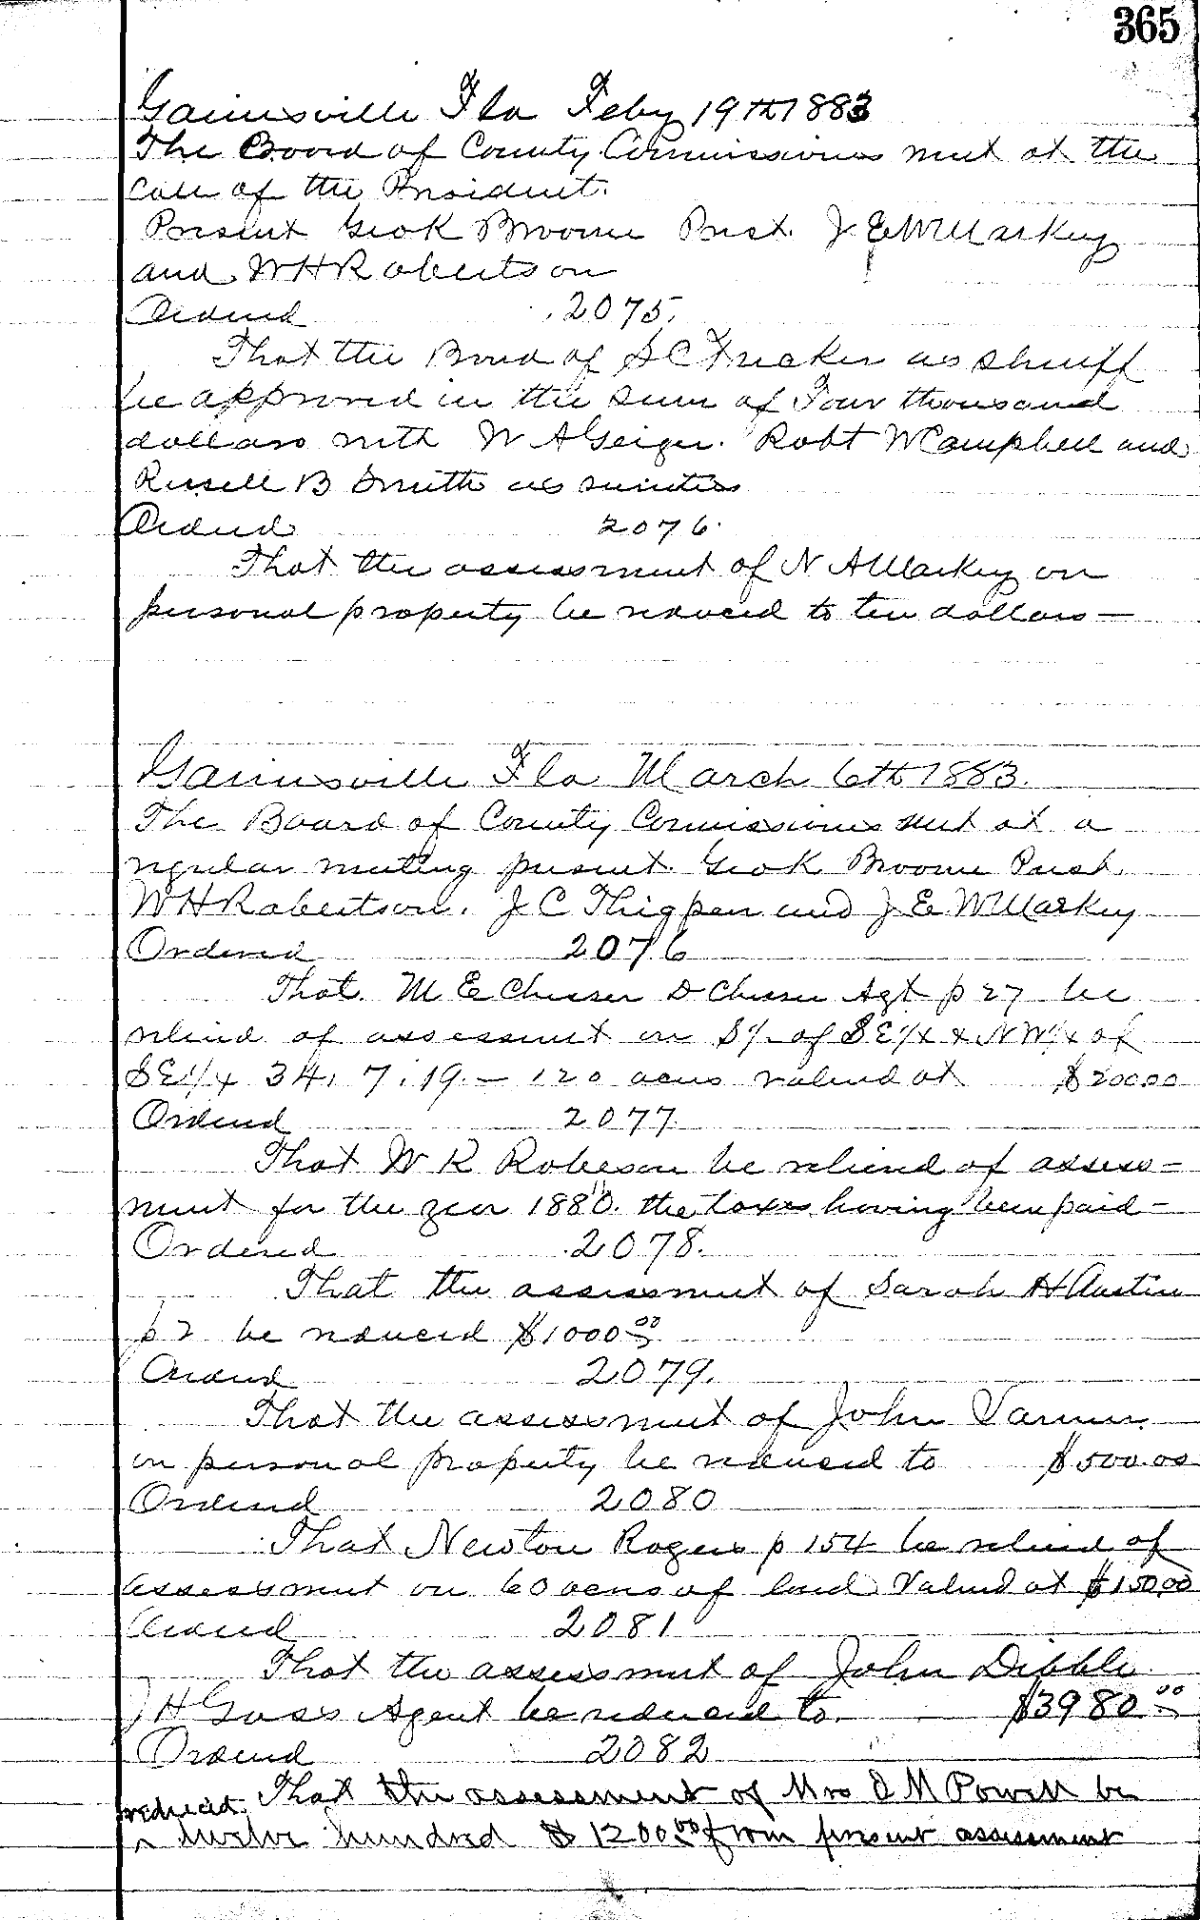 365
Gainesville Fla Feby 19th 1883
The Board of County Commissioners met at the
call of the President.
Present Geo K Broome Prest. J E W Markey
and W H Robertson
Ordered 2075.
That the Bond of S C Tucker as Sheriff
be approved in the sum of Four thousand
dollars with W A Geiger. Robt W Campbell and
Russell B Smith as sureties
Ordered 2076.
That the assessment of N A Markey on
personal property be reduced to ten dollars —
Gainesville Fla March 6th 1883.
The Board of County Commissioners met at a
regular meeting present. Geo K Broome Prest.
W H Robertson. J C Thigpen and J E W Markey
Ordered 2076
That M E Chesser D Chesser Agt p 27 be
relieved of assessment on S½ of SE¼ & NW¼ of
SE¼ 34. 7. 19. — 120 acres valued at $200.00
Ordered 2077.
That W R Robeson be relieved of assess-
ment for the year 1880. the taxes having been paid —
Ordered 2078.
That the assessment of Sarah H Austin
p 2 be reduced $1000.00
Ordered 2079.
That the assessment of John Varnum
on personal property be reduced to $500.00
Ordered 2080
That Newton Rogers p 154 be relieved of
assessment on 60 acres of land Valued at $150.00
Ordered 2081
That the assessment of John Dibble
J H Goss Agent be reduced to. $3980.00
Ordered 2082
That the assessment of Mrs O M Powell be
reduced twelve hundred $1200.00 from present assessment